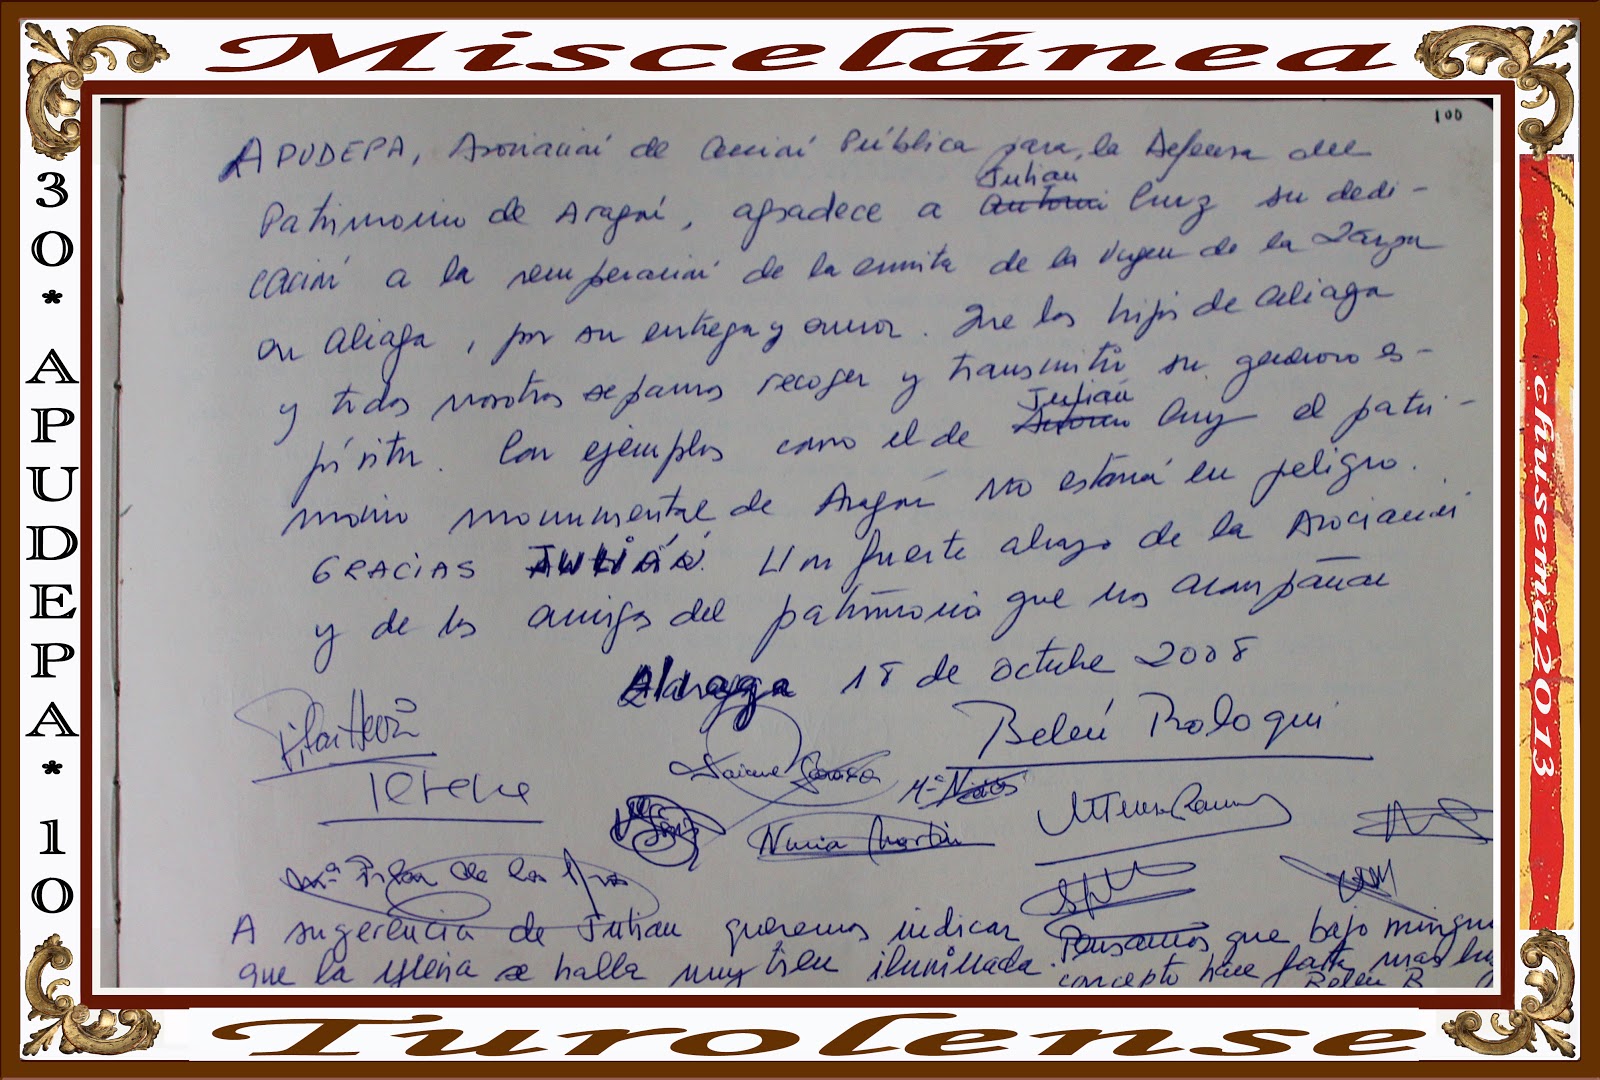 Miscelánea
30*APUDEPA*10
chusema2013
100
APUDEPA, Asociación de Acción Pública para la Defensa del
Julian
Patrimonio de Aragón, agradece a Antonio Cruz su dedi-
cación a la recuperación de la ermita de la Virgen de la Zarza
en Aliaga, por su entrega y amor. Que los hijos de Aliaga
y todos nosotros sepamos recoger y transmitir su generoso es-
Julián
píritu. Con ejemplos como el de Antonio Cruz el patri-
monio monumental de Aragón no estará en peligro.
GRACIAS JULIÁN. Un fuerte abrazo de la Asociación
y de los amigos del patrimonio que nos acompañan
Aliaga 18 de octubre 2008
Belén Boloqui
Nuria Martín
Mª Pilar de la
A sugerencia de Julian queremos indicar
que la iglesia se halla muy bien iluminada.
Pensamos que bajo ningun
concepto hace falta mas luz
Belén B
Turolense